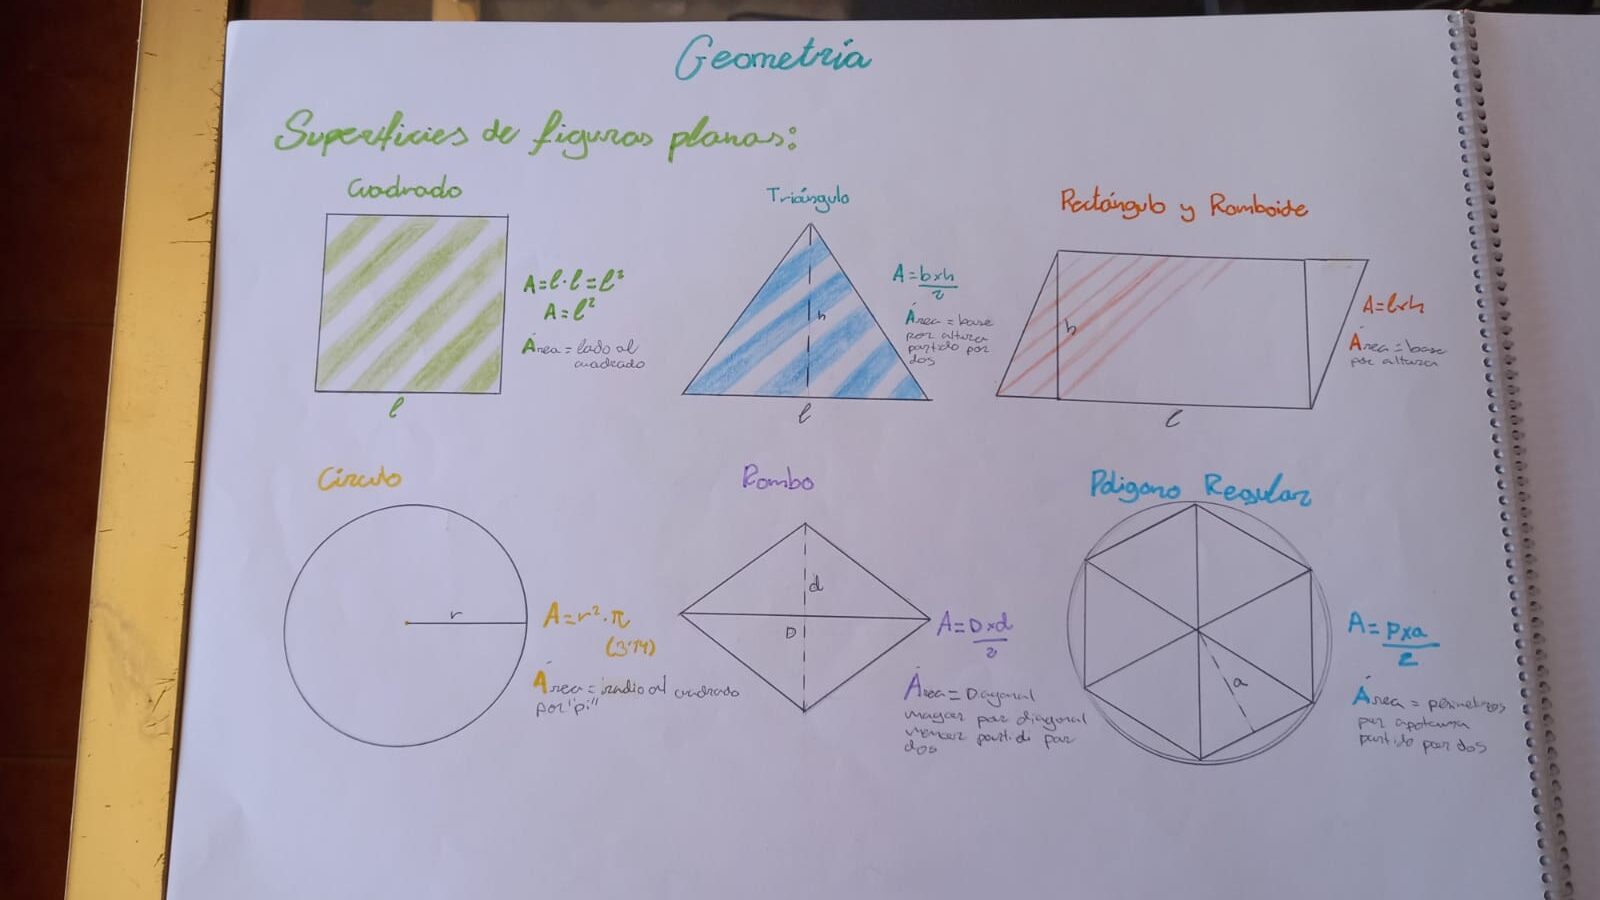 Geometría
Superficies de figuras planas:
Cuadrado
A=l·l=l²
A=l²
Área = lado al
cuadrado
l
Triángulo
h
A=bxh
2
Área = base
por altura
partido por
dos
l
Rectángulo y Romboide
h
A=lxh
Área = base
por altura
l
Círculo
r
A=r²·π
(3'14)
Área = radio al cuadrado
por "pi"
Rombo
d
D
A=Dxd
2
Área = Diagonal
mayor por diagonal
menor partido por
dos
Polígono Regular
a
A=Pxa
2
Área = perímetros
por apotema
partido por dos